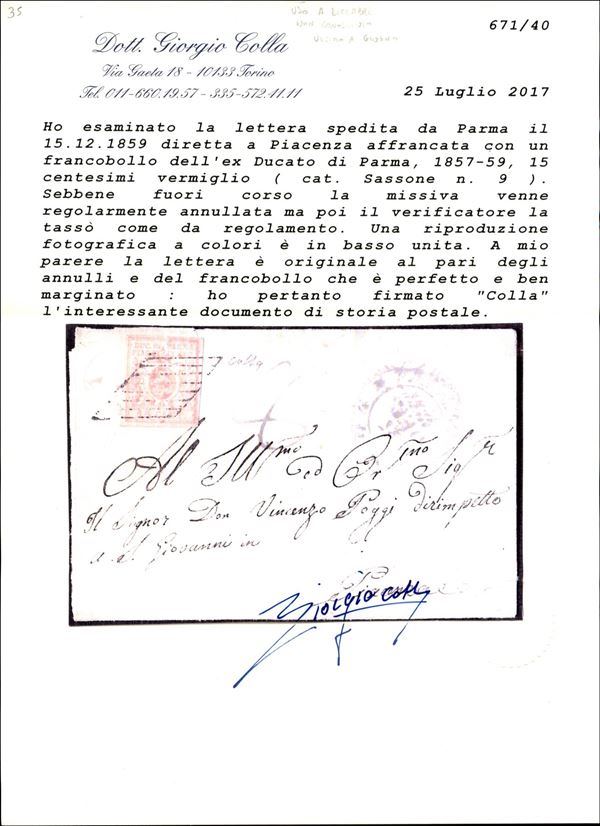 35
671/40
Dott. Giorgio Colla
Via Gaeta 18 - 10133 Torino
Tel. 011-660.19.57 - 335-572.41.11
25 Luglio 2017
Ho esaminato la lettera spedita da Parma il
15.12.1859 diretta a Piacenza affrancata con un
francobollo dell'ex Ducato di Parma, 1857-59, 15
centesimi vermiglio ( cat. Sassone n. 9 ).
Sebbene fuori corso la missiva venne
regolarmente annullata ma poi il verificatore la
tassò come da regolamento. Una riproduzione
fotografica a colori è in basso unita. A mio
parere la lettera è originale al pari degli
annulli e del francobollo che è perfetto e ben
marginato : ho pertanto firmato "Colla"
l'interessante documento di storia postale.
Colla
Al Ill.mo ed Or.mo Sig.r
Il Signor Don Vincenzo Poggi dirimpetto
a S. Giovanni in
Piacenza
Giorgio Colla